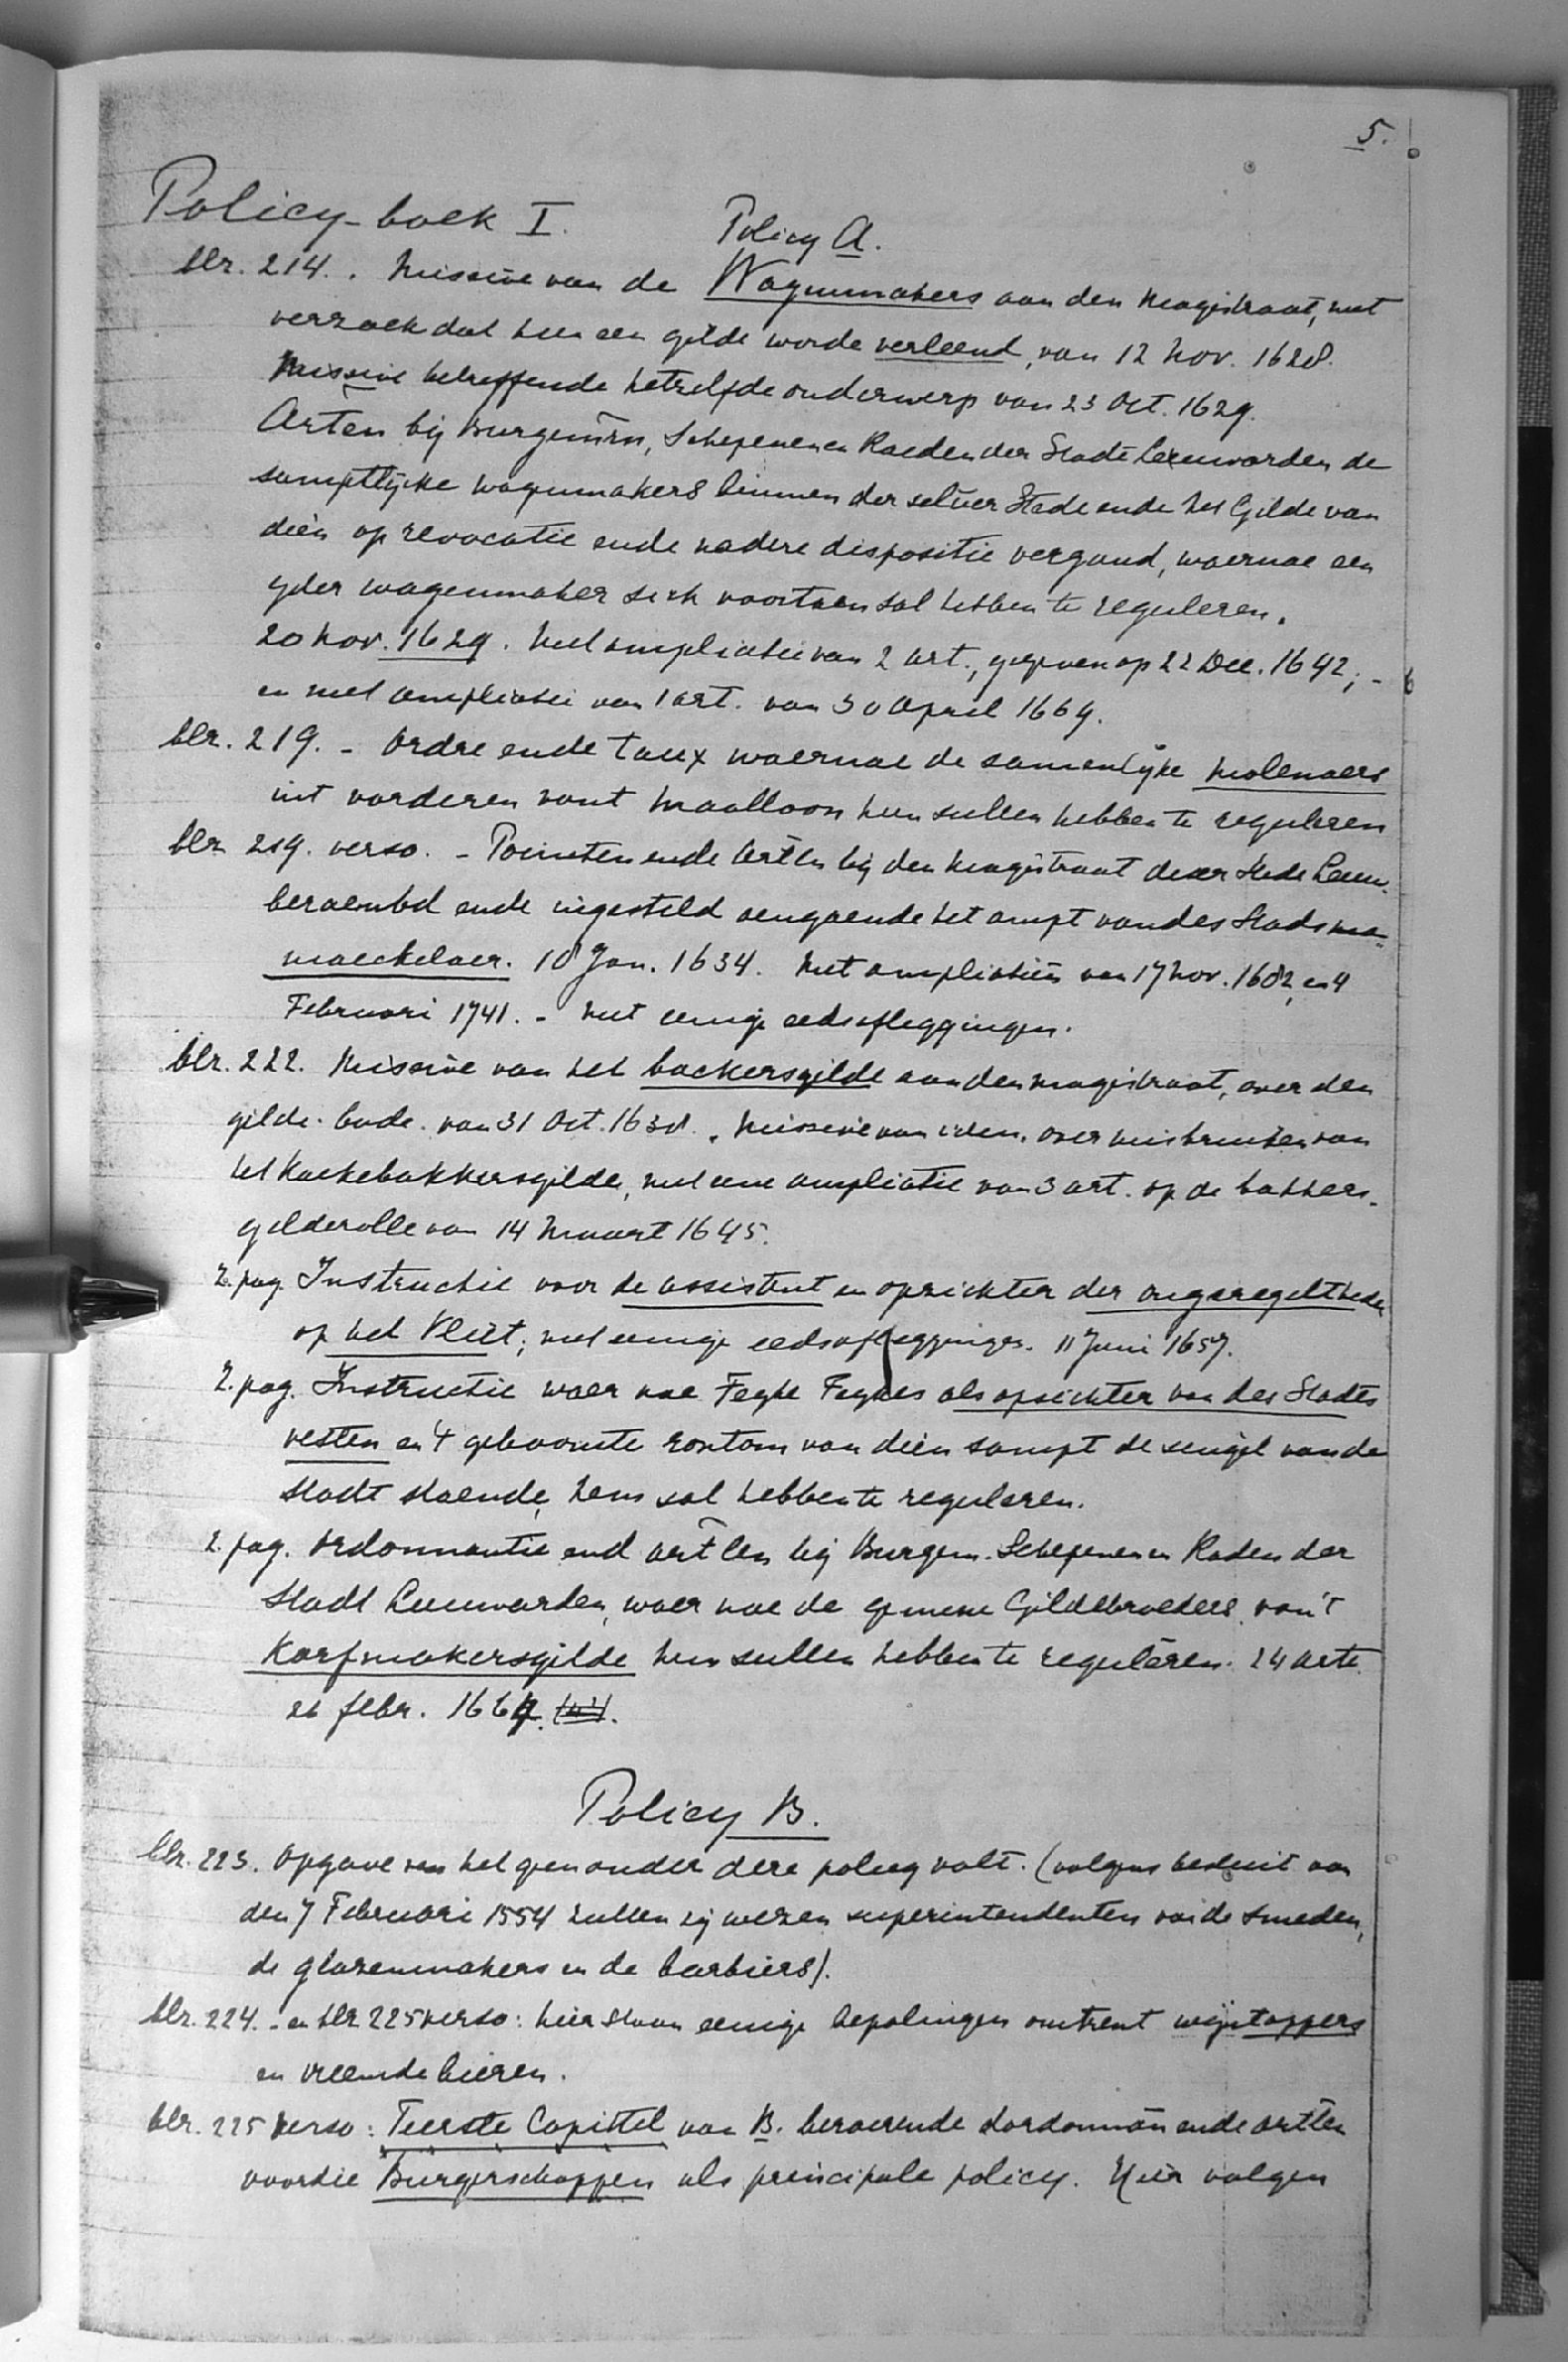 5.
Policy-boek I. Policy A.
blz. 214. . Missive van de Wagenmakers aan den Magistraat, met
verzoek dat hen een gilde worde verleend, van 12 Nov. 1628.
Missive betreffende hetzelfde onderwerp van 23 Oct. 1629.
Arten bij Burgemrn, Schepenen en Raeden der Stadt Leeuwarden de
samptlijcke wagenmakers binnen der selver Stede ende het Gilde van
dien op revocatie ende nadere dispositie vergund, waernae een
yder wagenmaker sich voortaen sal hebben te reguleren.
20 Nov. 1629. Met ampliatie van 2 art., gegeven op 22 Dec. 1642; -
en met ampliatie van 1 art. van 30 April 1669.
blz. 219. - Ordre ende taux waernae de samenlijke Molenaers
int vorderen vant Maalloon hen sullen hebben te reguleren
blz 219. verso. - Poincten ende Artlen bij den Magistraat deser stede Leeuw.
beraembd ende ingesteld aengaende het ampt van des Stads ma-
maeckelaer. 18 Jan. 1634. Met ampliatiën van 17 Nov. 1682, en 4
Februari 1741. - Met eenige eedsafleggingen.
blz. 222. Missive van het backersgilde aan den magistraat, over den
gilde-bode. van 31 Oct. 1638. . Missive van idem, over misbruiken van
het Koekebakkersgilde, met eene ampliatie van 3 art. op de bakkers-
gilderolle van 14 Maart 1645.
Z. pag. Instructie voor de assistent en opzichter der ongeregeltheden
op het Vliet; met eenige eedsafleggingen. 11 Juni 1657.
Z. pag. Instructie waer nae Feyke Feykes als opsichter van des Stadts
vesten en 't geboomte rontom van dien sampt de cingel van de
Stadt staende, hem sal hebben te reguleren.
Z. pag. Ordonnantie end artlen bij Burgem. Schepenen en Raden der
Stadt Leeuwarden, waer nae de gemene Gildebroeders van 't
Korfmakersgilde hen sullen hebben te reguleren. 24 arte
26 febr. 1664.
Policy B.
blz. 223. Opgave van hetgeen onder deze policy valt. (volgens besluit van
den 7 Februari 1554 zullen zij wezen superintendenten van de smeden,
de glazenmakers en de barbiers).
blz. 224. - en blz 225 verso: hier staan eenige bepalingen omtrent wijntappers
en vreemde bieren.
blz. 225 verso: Teerste Capittel van B. beroerende dordonnān ende artlen
voordie Burgerschappen als principale policy. Hier volgen